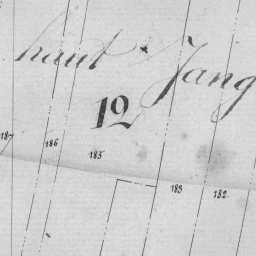 haut Jang
12
187 186 185 183 182